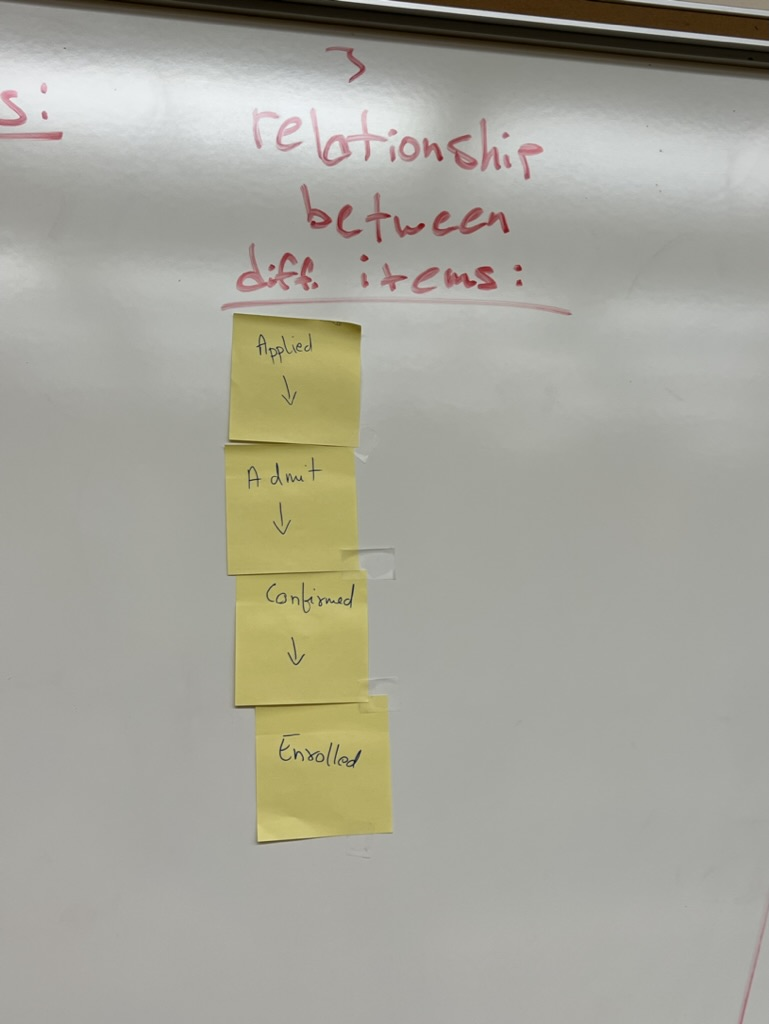 s:
3
relationship
between
diff. items:
Applied
↓
Admit
↓
Confirmed
↓
Enrolled